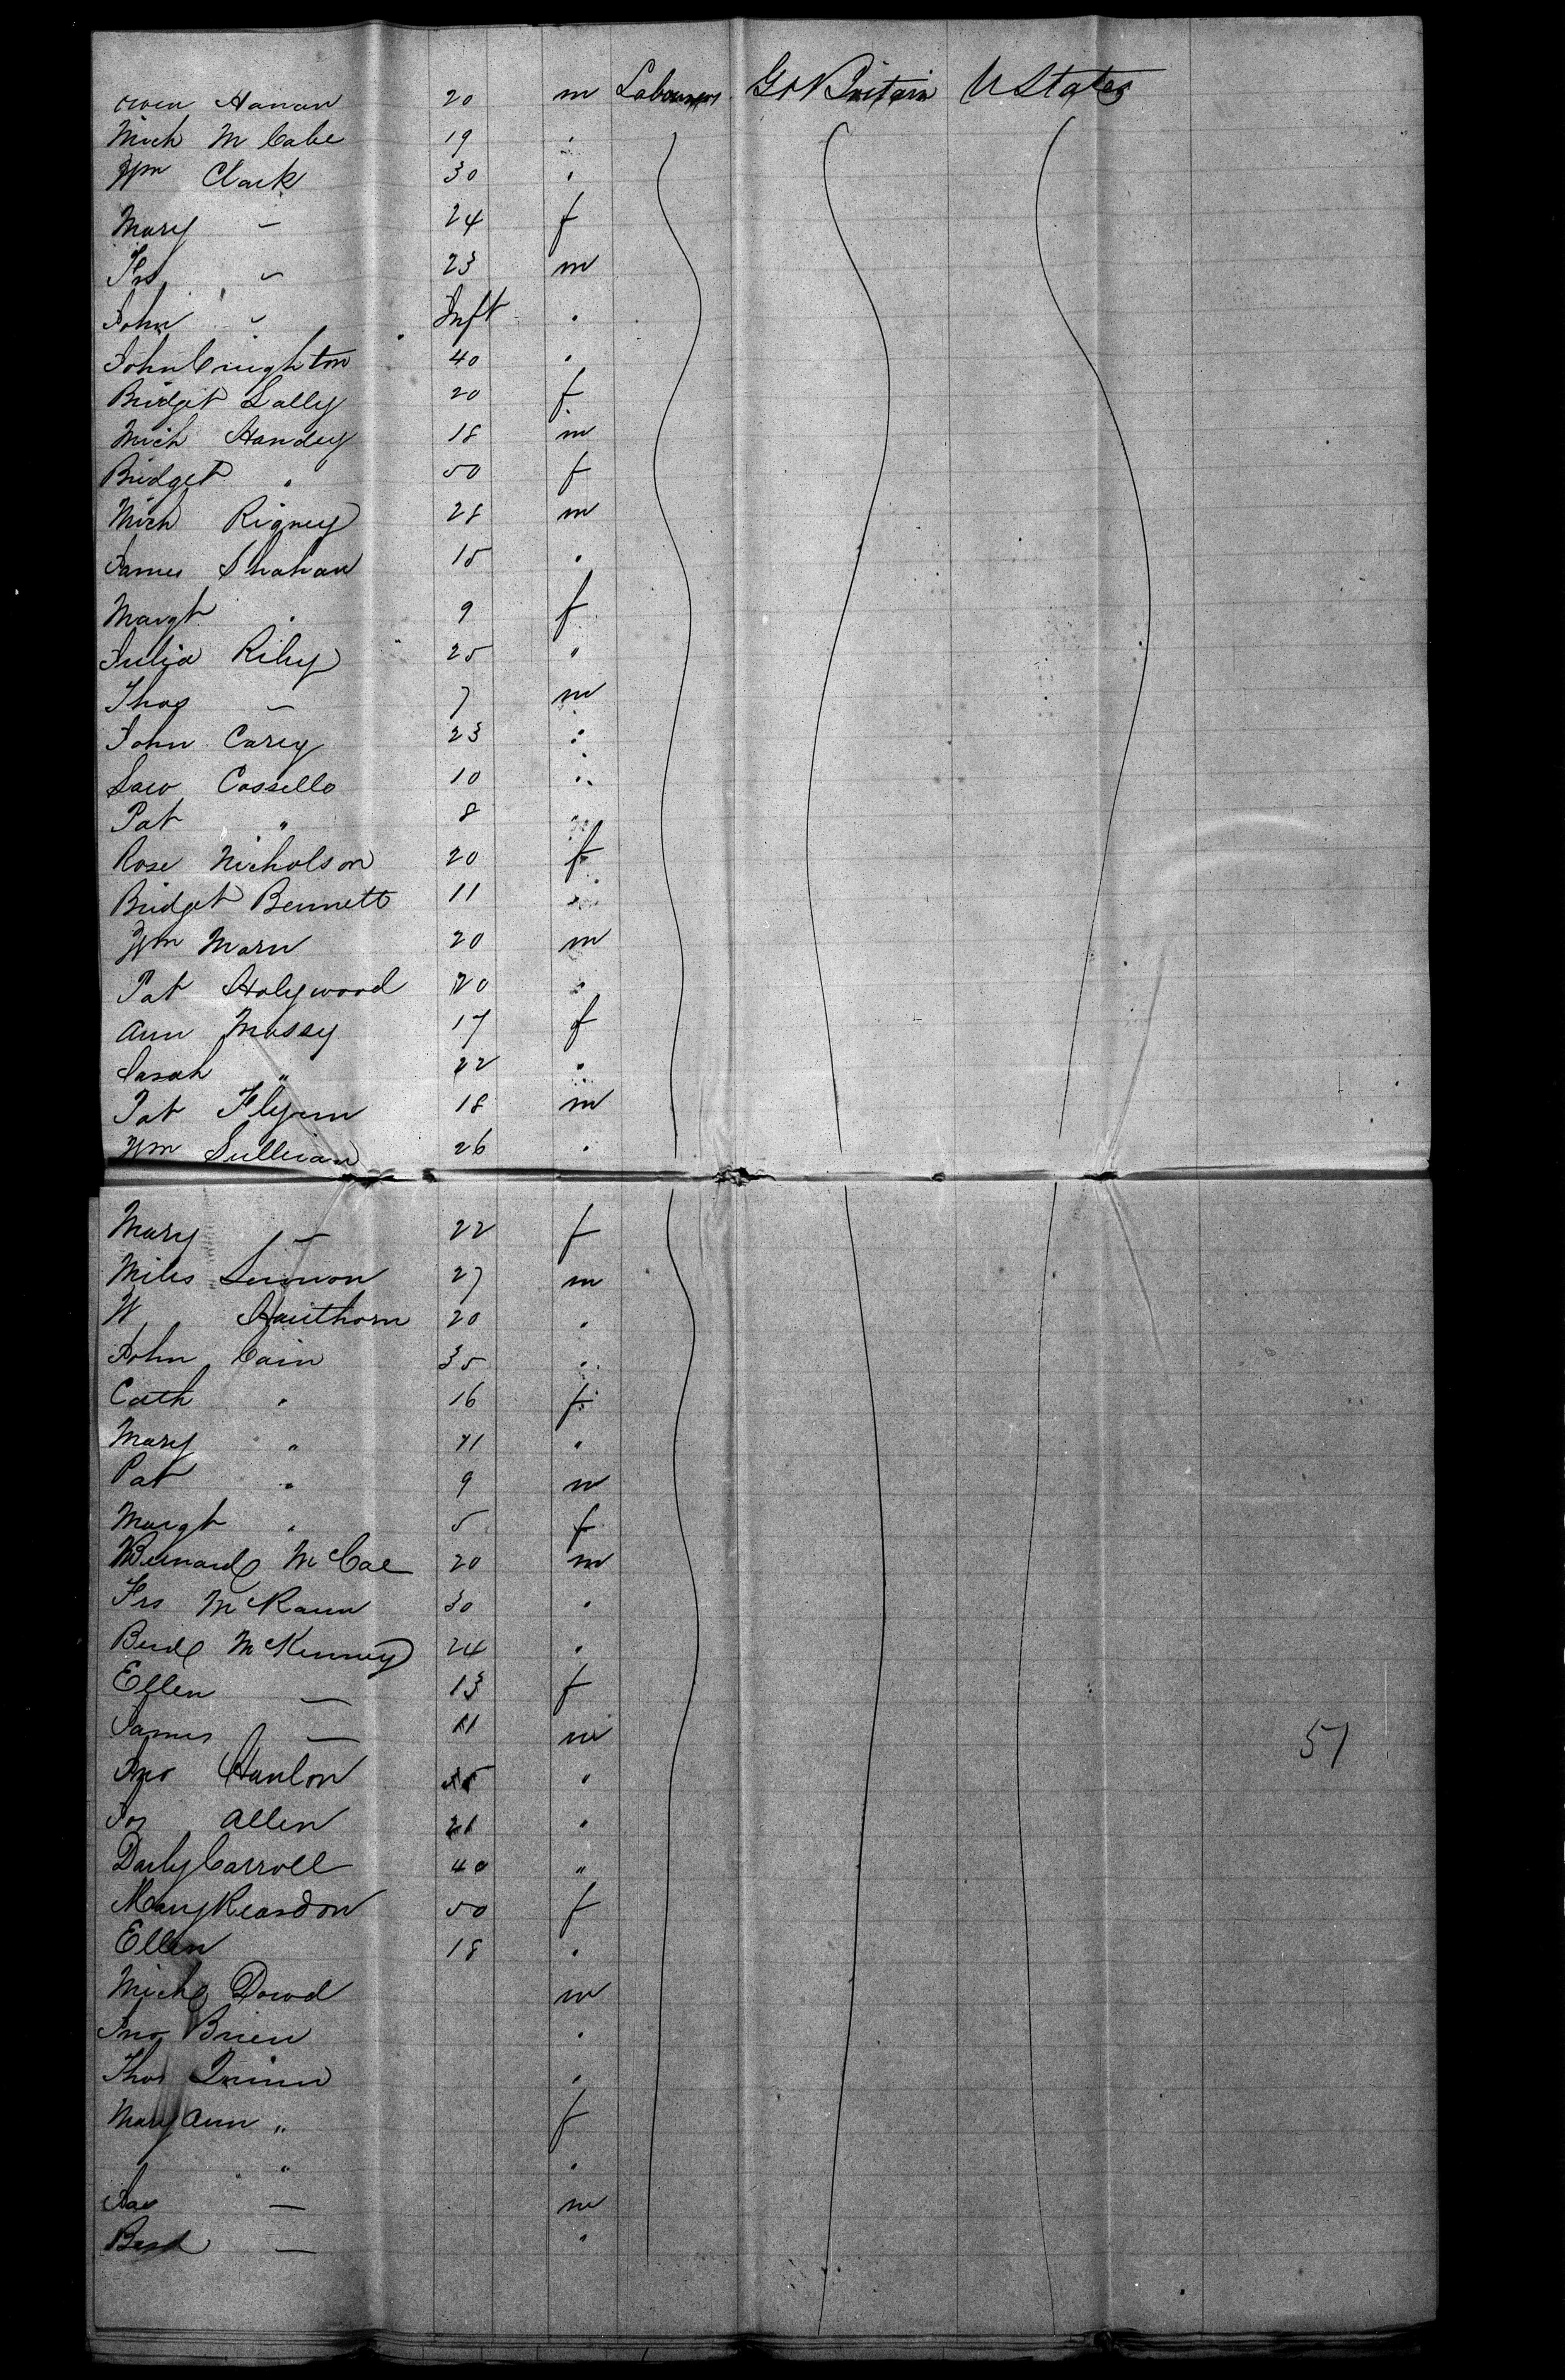 Owen Hanan 20 m Labourers Gt Britain U States
Mich McCabe 19 "
Wm Clark 30 "
Mary — 24 f
Frs — 23 m
John — Inft "
John Creighton 40 "
Bridget Lally 20 f
Mich Handey 18 m
Bridget " 50 f
Mich Rigney 28 m
James Shahan 15 "
Margt " 9 f
Julia Riley 25 "
Thos — 7 m
John Carey 23 "
Law Cossello 10 "
Pat " 8 "
Rose Nicholson 20 f
Bridget Bennett 11 "
Wm Marn 20 m
Pat Holywood 20 "
Ann Massy 17 f
Sarah " 22 "
Pat Flynn 18 m
Wm Sullivan 26 "
Mary — 22 f
Miles Lennon 27 m
W Hauthorn 20 "
John Cain 35 "
Cath " 16 f
Mary " 11 "
Pat " 9 m
Margt " 5 f
Bernard McCae 20 m
Frs McKann 30 "
Berd McKenney 24 "
Ellen — 13 f
James — 11 m
Jno Hanlon "
Jos Allen 21 "
Darby Carroll 40 "
Mary Reardon 50 f
Ellen 18 "
Michl Dowd m
Jno Brien "
Thos Quinn "
Mary Ann " f
" "
Jas — m
Berd — "
51